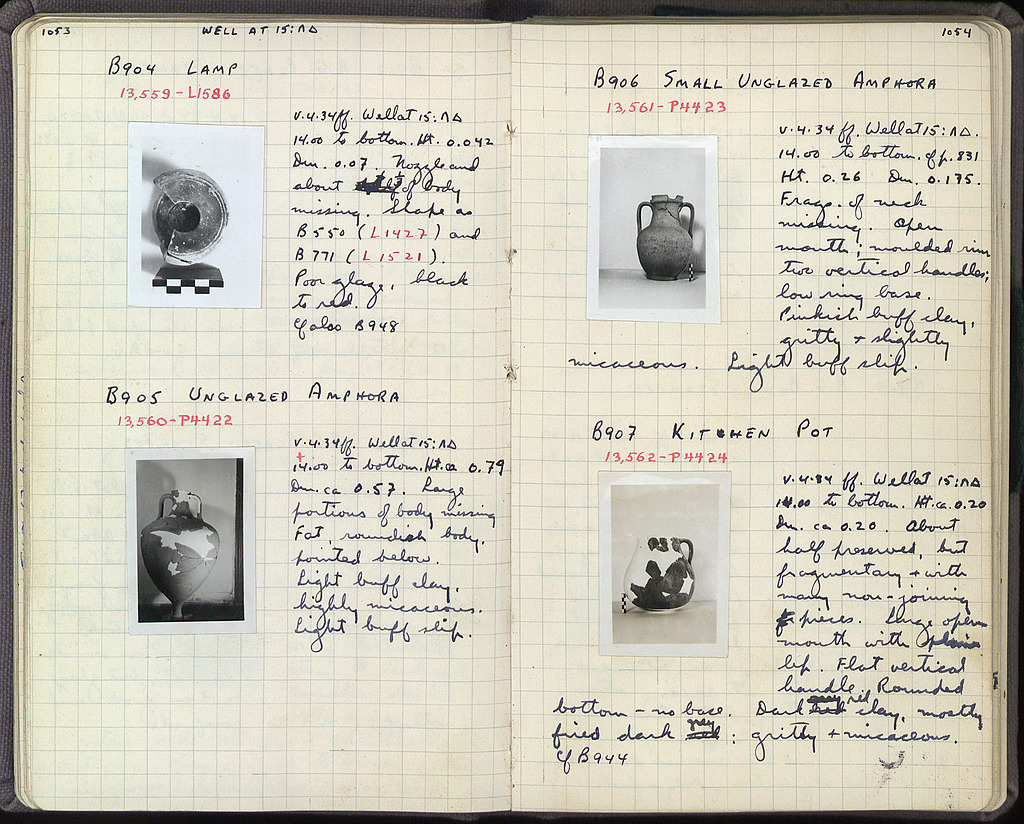 1053
WELL AT 15:ΛΔ
B904 LAMP
13,559 - L1586
v.4.34ff. Well at 15:ΛΔ
14.00 to bottom. Ht. 0.042
Dm. 0.07. Nozzle and
about of body
missing. Shape as
B550 (L1427) and
B771 (L1521).
Poor glaze, black
to red.
Cf also B948
B905 UNGLAZED AMPHORA
13,560 - P4422
v.4.34ff. Well at 15:ΛΔ
14.00 to bottom. Ht. ca 0.79
Dm. ca 0.57. Large
portions of body missing
Fat, roundish body,
pointed below.
Light buff clay,
highly micaceous.
Light buff slip.
1054
B906 SMALL UNGLAZED AMPHORA
13,561 - P4423
v.4.34 ff. Well at 15:ΛΔ.
14.00 to bottom. cf p. 831
Ht. 0.26 Dm. 0.175.
Frags. of neck
missing. Open
mouth; moulded rim
two vertical handles;
low ring base.
Pinkish buff clay,
gritty + slightly
micaceous. Light buff slip.
B907 KITCHEN POT
13,562 - P4424
v.4.34 ff. Well at 15:ΛΔ
14.00 to bottom. Ht. ca. 0.20
Dm. ca 0.20. About
half preserved, but
fragmentary + with
many non-joining
pieces. Large open
mouth with plain
lip. Flat vertical
handle. Rounded
bottom - no base. Dark red clay, mostly
fired dark grey; gritty + micaceous.
Cf B944